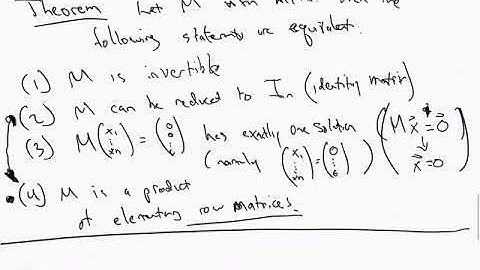 Theorem Let M
following statements are equivalent.
(1) M is invertible
(2) M can be reduced to In (identity matrix)
(3) M(x₁ ⋮ xn) = (0 0 ⋮ 0) has exactly one solution (Mx⃗ = 0⃗
(namely (x₁ ⋮ xn) = (0 ⋮ 0)) ↓ x⃗ = 0)
(4) M is a product
of elementary row matrices.